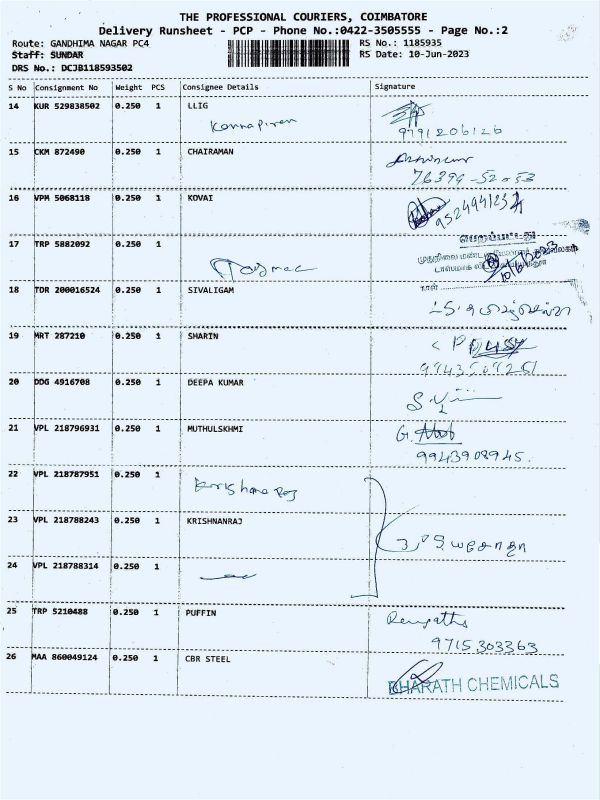 THE PROFESSIONAL COURIERS, COIMBATORE
Delivery Runsheet - PCP - Phone No.:0422-3505555 - Page No.:2
Route: GANDHIMA NAGAR PC4 RS No.: 1185935
Staff: SUNDAR RS Date: 10-Jun-2023
DRS No.: DCJB118593502
S No Consignment No Weight PCS Consignee Details Signature
14 KUR 529838502 0.250 1 LLIG
9791206126
15 CKM 872490 0.250 1 CHAIRAMAN
76399-52053
16 VPM 5068118 0.250 1 KOVAI
9524941234
17 TRP 5882092 0.250 1
10/6/2023
நாள்
18 TDR 200016524 0.250 1 SIVALIGAM
19 MRT 287210 0.250 1 SHARIN
20 DDG 4916708 0.250 1 DEEPA KUMAR
21 VPL 218796931 0.250 1 MUTHULSKHMI
G.
9943908945.
22 VPL 218787951 0.250 1 Krishna Raj
23 VPL 218788243 0.250 1 KRISHNANRAJ
24 VPL 218788314 0.250 1
25 TRP 5210488 0.250 1 PUFFIN
9715303363
26 MAA 860049124 0.250 1 CBR STEEL
BHARATH CHEMICALS